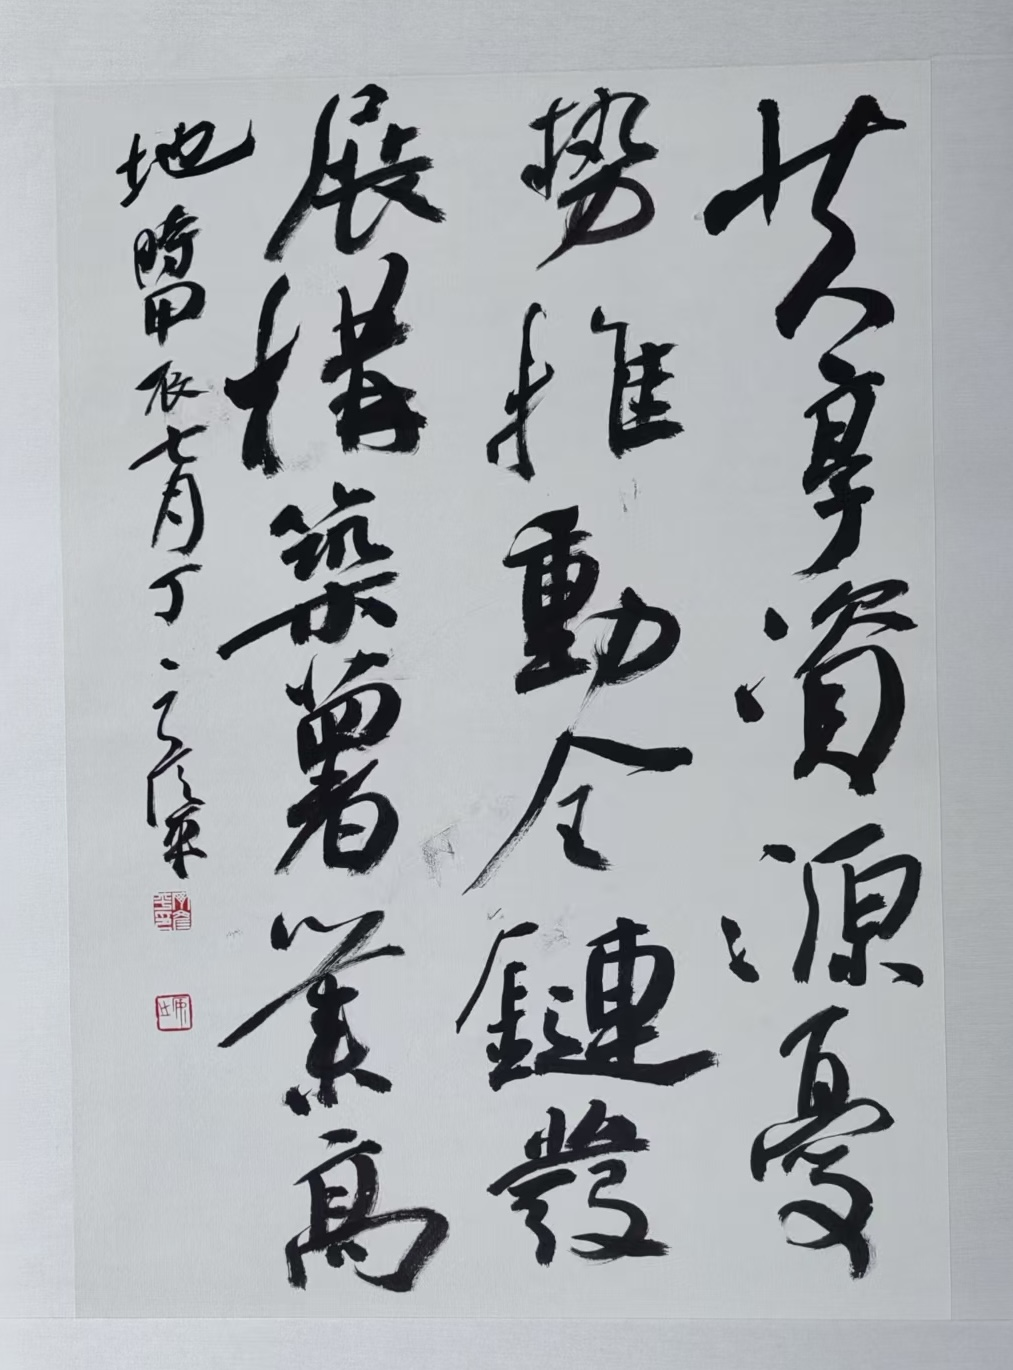 共享資源憂
势推動全鏈發
展構築薯業高
地 時甲辰七月丁